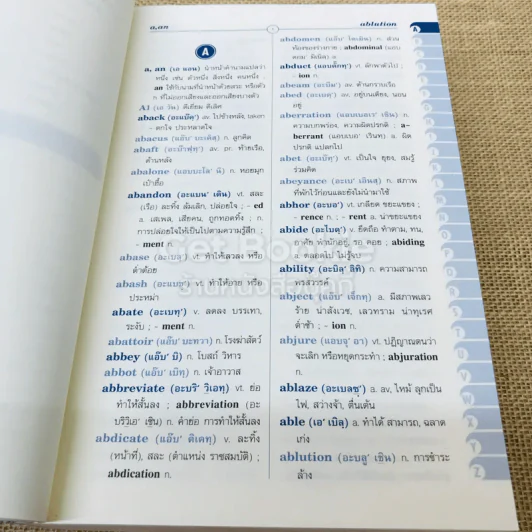 a,an
ablution
A
a, an (เอ แอน) นำหน้าคำนามแปลว่า
หนึ่ง เช่น ตัวหนึ่ง สิ่งหนึ่ง คนหนึ่ง ;
an ใช้กับนามที่นำหน้าด้วยสระ หรือตัว
h ที่ไม่ออกเสียงและออกเสียงบางตัว
A1 (เอ วัน) ดีเยี่ยม ดีเลิศ
aback (อะแบ๊คฺ') av. ไปข้างหลัง, ผงะ
- ตกใจ ประหลาดใจ
abacus (แอ๊บ' บะคัสฺ) n. ลูกคิด
abaft (อะบ๊าฟฺทฺ') av; pr. ท้ายเรือ,
ด้านหลัง
abalone (แอบบะโล' นิ) n. หอยมุก
เป๋าฮื้อ
abandon (อะแบน' เดิน) vt. สละ
(เรือ) ละทิ้ง ล้มเลิก, ปล่อยใจ ; - ed
a. เสเพล, เสียคน, ถูกทอดทิ้ง ; n.
การปล่อยใจให้เป็นไปตามความรู้สึก ;
- ment n.
abase (อะเบสฺ') vt. ทำให้เลวลง หรือ
ต่ำต้อย
abash (อะแบช') vt. ทำให้อาย หรือ
ประหม่า
abate (อะเบทฺ') v. ลดลง บรรเทา,
ระงับ ; - ment n.
abattoir (แอ๊บ' บะทวา) n. โรงฆ่าสัตว์
abbey (แอ๊บ' บิ) n. โบสถ์ วิหาร
abbot (แอ๊บ' เบิท) n. เจ้าอาวาส
abbreviate (อะบรี' วิเอท) vt. ย่อ
ทำให้สั้นลง ; abbreviation (อะ
บริวิเอ' เชิน) n. คำย่อ การทำให้สั้นลง
abdicate (แอ๊บ' ดิเคท) v. ละทิ้ง
(หน้าที่), สละ (ตำแหน่ง ราชสมบัติ) ;
abdication n.
abdomen (แอ๊บ' โดเมิน) n. ส่วน
ท้องของร่างกาย ; abdominal
abduct vt. ลักพาตัวไป ;
- ion n.
abeam (อะบีม') av. ด้านกราบเรือ
abed (อะเบด') av. อยู่บนเตียง, นอน
อยู่
aberration n.
ความบกพร่อง, ความผิดปรกติ ; a-
berrant a. ผิด
ปรกติ แปลกไป
abet (อะเบ็ท') vt. เป็นใจ ยุยง, สมรู้
ร่วมคิด
abeyance (อะเบ' เอินสฺ) n. สภาพ
ที่พักไว้ก่อนและยังไม่นำมาใช้
abhor vt. เกลียด ขยะแขยง ;
- rence n. ; - rent a. น่าขยะแขยง
abide (อะไบดฺ') v. ยึดถือ ทำตาม, ทน,
อาศัย พำนักอยู่, รอ คอย ; abiding
a. ตลอดไป ไม่รู้จบ
ability (อะบิล' ลิที) n. ความสามารถ
พรสวรรค์
abject (แอ๊บ' เจ็กทฺ) a. มีสภาพเลว
ร้าย น่าสังเวช, เลวทราม น่าทุเรศ
ต่ำช้า ; - ion n.
abjure (แอบจู' อา) vt. ปฏิญาณตนว่า
จะเลิก หรือหยุดกระทำ ; abjuration
n.
ablaze (อะเบลซฺ') a. av, ไหม้ ลุกเป็น
ไฟ, สว่างจ้า, ตื่นเต้น
able (เอ' เบิล) a. ทำได้ สามารถ, ฉลาด
เก่ง
ablution (อะบลู' เชิน) n. การชำระ
ล้าง
Get Bookie
ร้านหนังสือบุ๊กกี้